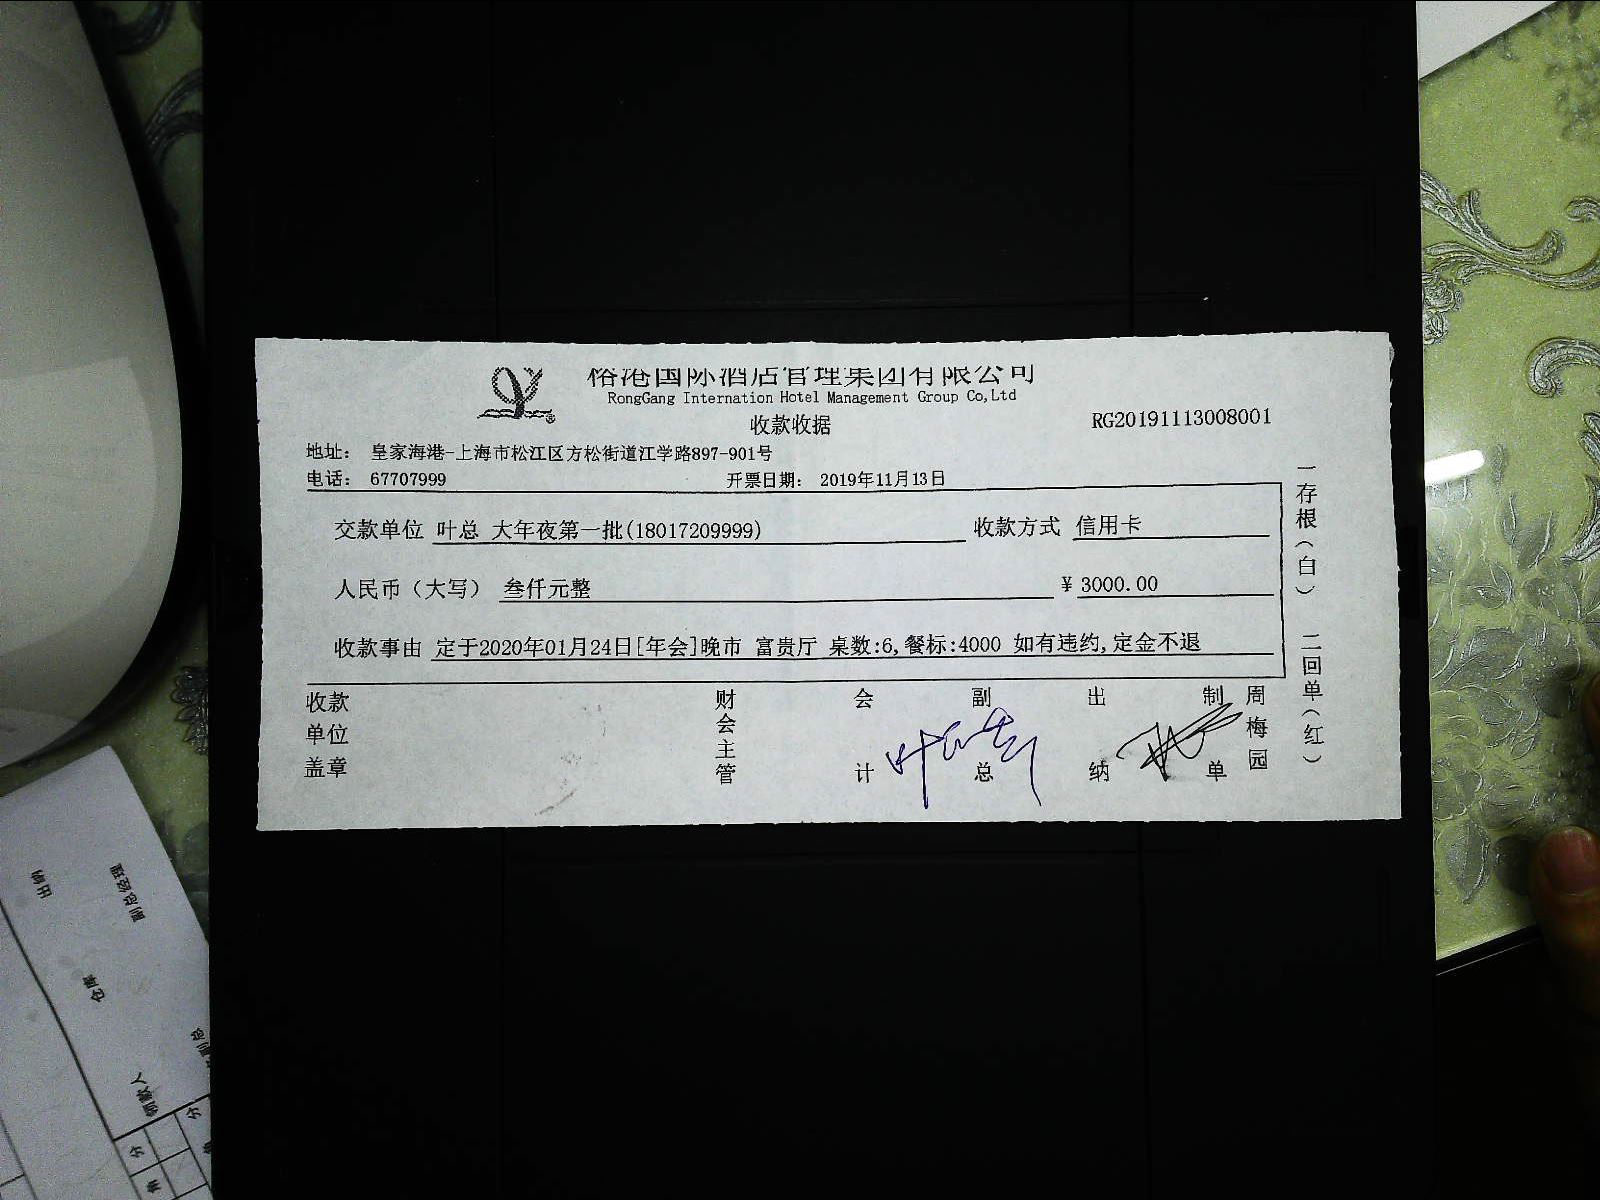 榕港国际酒店管理集团有限公司
RongGang Internation Hotel Management Group Co,Ltd
收款收据
RG20191113008001
地址： 皇家海港-上海市松江区方松街道江学路897-901号
电话： 67707999 开票日期： 2019年11月13日
交款单位 叶总 大年夜第一批(18017209999) 收款方式 信用卡
人民币（大写） 叁仟元整 ¥ 3000.00
收款事由 定于2020年01月24日[年会]晚市 富贵厅 桌数:6,餐标:4000 如有违约,定金不退
收款单位盖章
财会主管
会计
副总
出纳
制单
周梅园
一存根（白） 二回单（红）
出纳
副总经理
仓库
领款人
副总
分
分
角